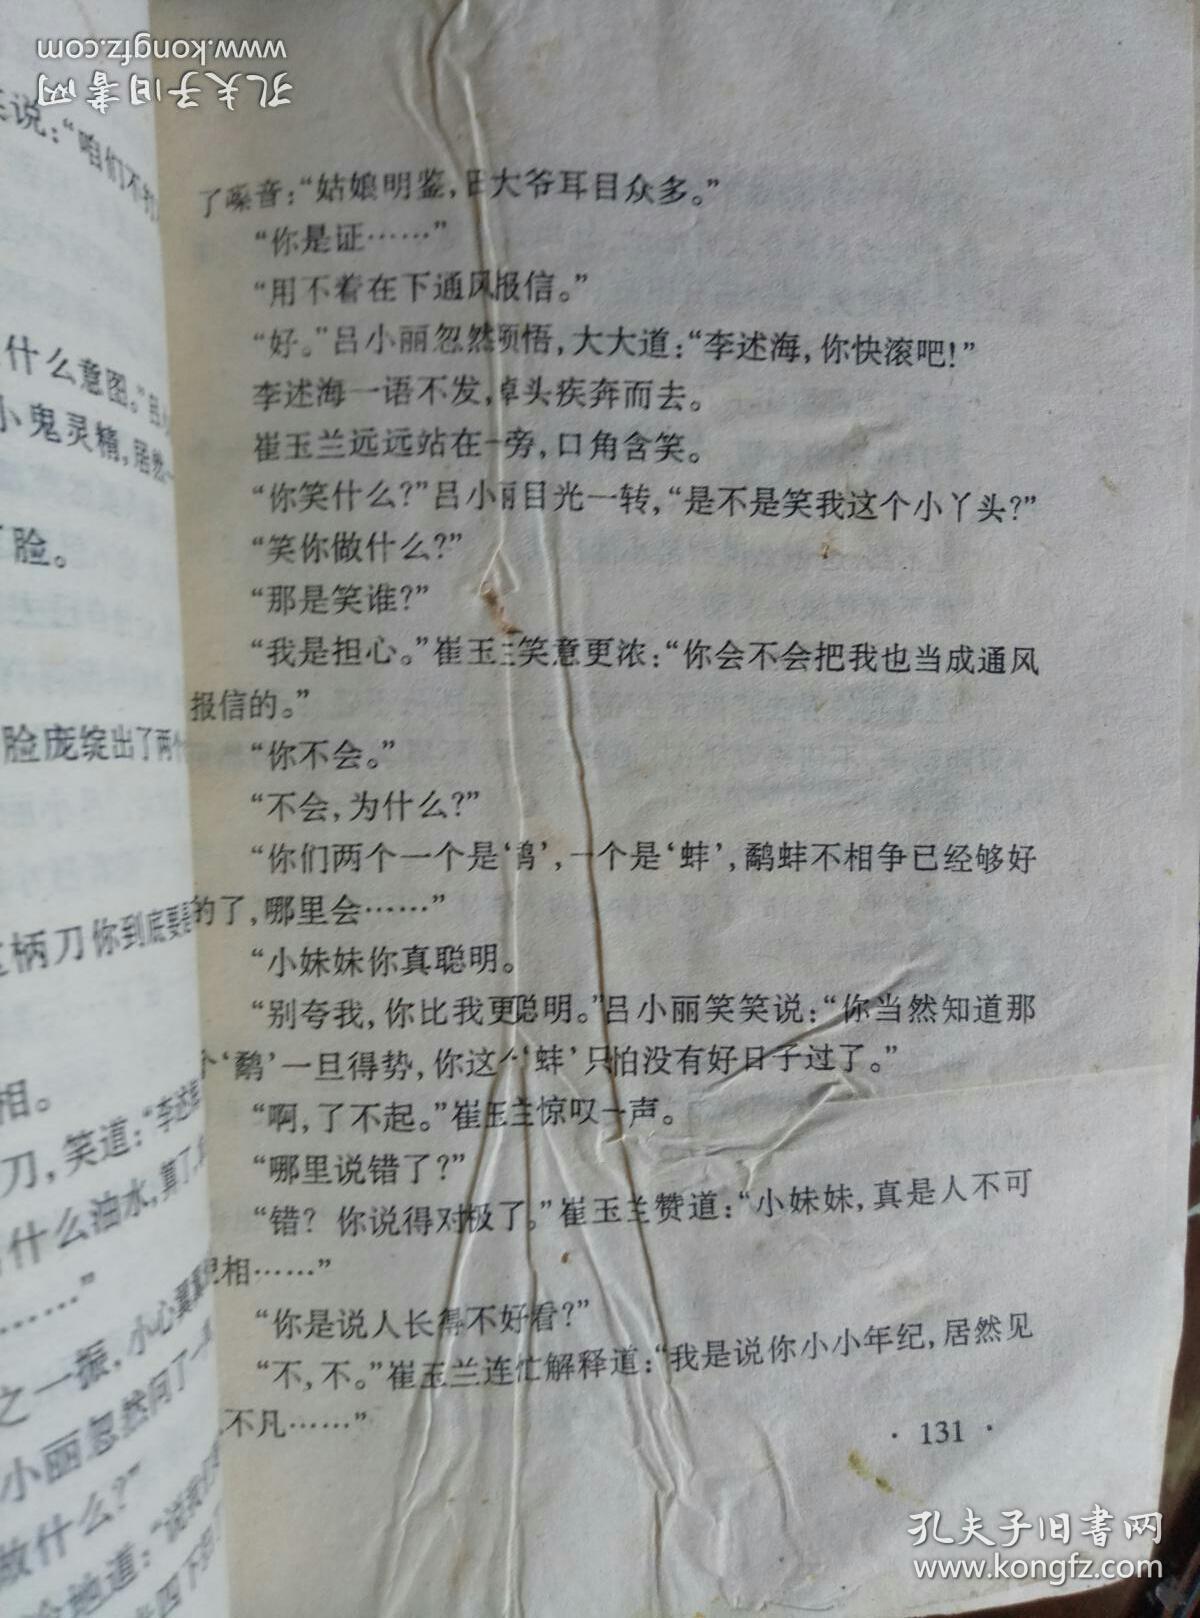 www.kongfz.com
孔夫子旧書网
说：“咱们不打
什么意图。”吕
小鬼灵精，居然
脸。
脸庞绽出了两个
柄刀你到底要
相。
刀，笑道：“李述
什么油水，算了，
……”
之一振，小心翼翼
小丽忽然问了一
做什么？”
地道：“说我们
四下
了嗓音：“姑娘明鉴，大爷耳目众多。”
“你是证……”
“用不着在下通风报信。”
“好。”吕小丽忽然顿悟，大大道：“李述海，你快滚吧！”
李述海一语不发，掉头疾奔而去。
崔玉兰远远站在一旁，口角含笑。
“你笑什么？”吕小丽目光一转，“是不是笑我这个小丫头？”
“笑你做什么？”
“那是笑谁？”
“我是担心。”崔玉兰笑意更浓：“你会不会把我也当成通风
报信的。”
“你不会。”
“不会，为什么？”
“你们两个一个是‘鹬’，一个是‘蚌’，鹬蚌不相争已经够好
的了，哪里会……”
“小妹妹你真聪明。
“别夸我，你比我更聪明。”吕小丽笑笑说：“你当然知道那
个‘鹬’一旦得势，你这个‘蚌’只怕没有好日子过了。”
“啊，了不起。”崔玉兰惊叹一声。
“哪里说错了？”
“错？你说得对极了。”崔玉兰赞道：“小妹妹，真是人不可
貌相……”
“你是说人长得不好看？”
“不，不。”崔玉兰连忙解释道：“我是说你小小年纪，居然见
不凡……”
· 131 ·
孔夫子旧書网
www.kongfz.com